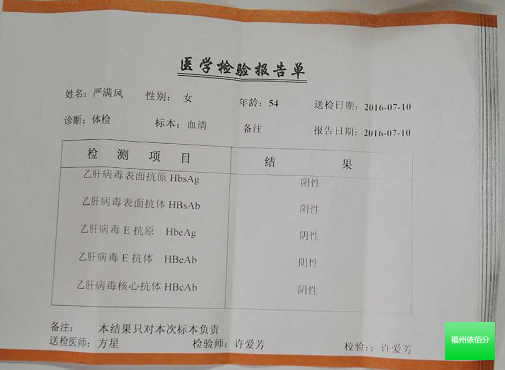 医学检验报告单
姓名：严满凤 性别： 女 年龄：54 送检日期：2016-07-10
诊断：体检 标本：血清 备注 报告日期：2016-07-10
检 测 项 目 结 果
乙肝病毒表面抗原 HbsAg 阴性
乙肝病毒表面抗体 HBsAb 阴性
乙肝病毒 E 抗原 HbeAg 阴性
乙肝病毒 E 抗体 HBeAb 阴性
乙肝病毒核心抗体 HBcAb 阴性
备注： 本结果只对本次标本负责
送检医师：方星 检验师：许爱芳 校验：：许爱芳
福州依佰分